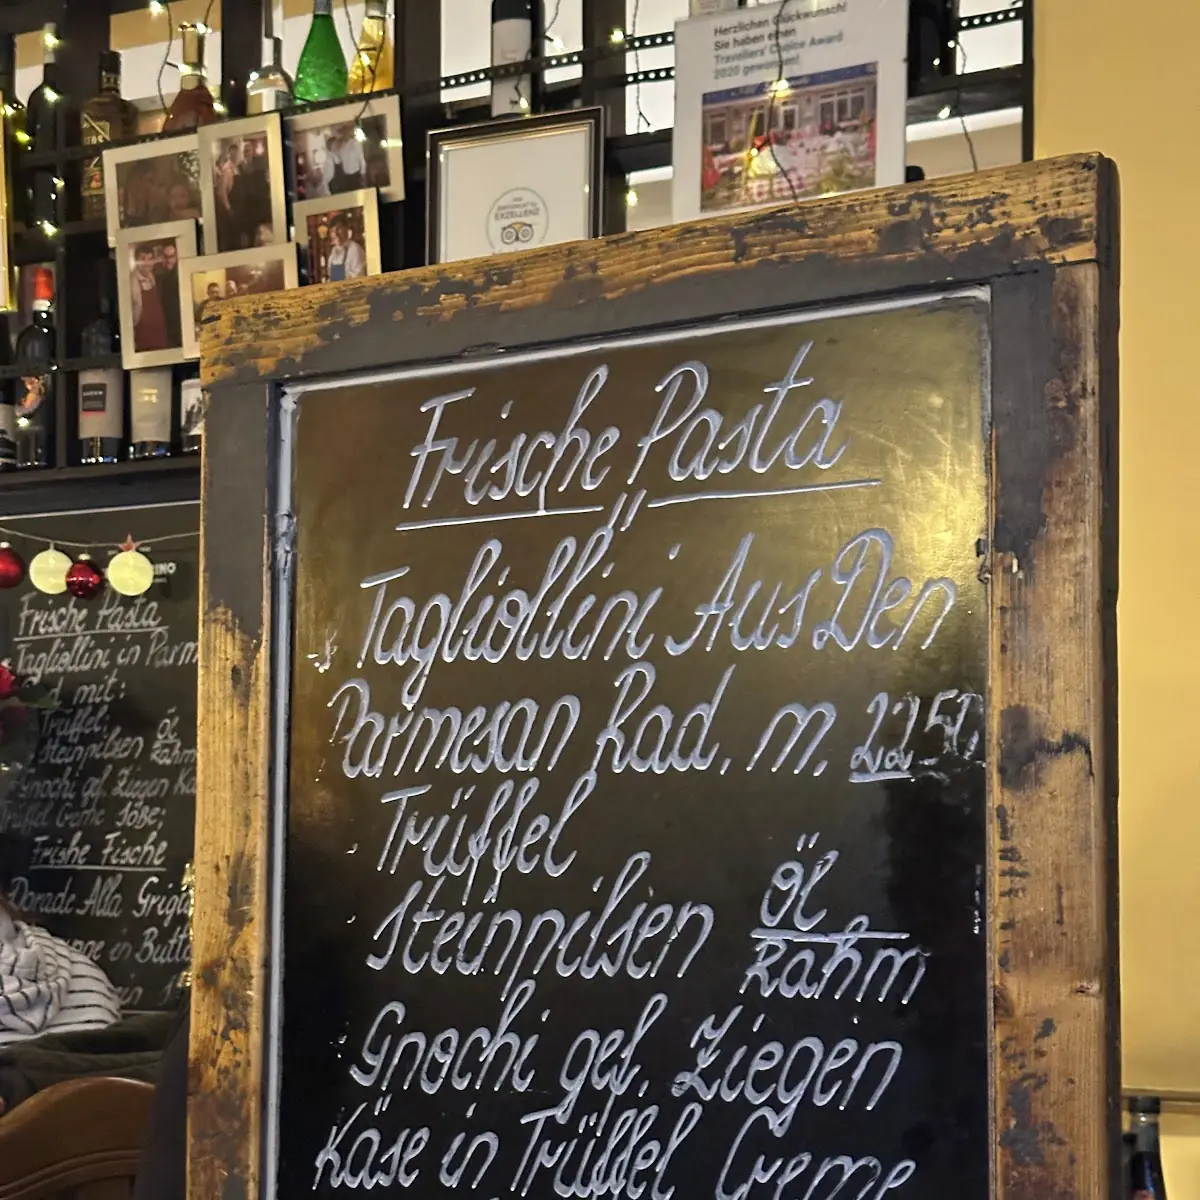 Herzlichen Glückwunsch!
Sie haben einen
Travellers' Choice Award
2020 gewonnen!
EXZELLENZ
Frische Pasta
Tagliollini Aus Den
Parmesan Rad. m. 22,50
Trüffel
Steinpilsen Öl
Rahm
Gnochi gef. Ziegen
Käse in Trüffel Creme
Frische Pasta
Tagliollini in Parm
mit:
Trüffel:
Steinpilsen Öl
Rahm
Gnochi gef. Ziegen Kä
Trüffel Creme Söße;
Frishe Fische
Dorade Alla Grigl
in Butt
in